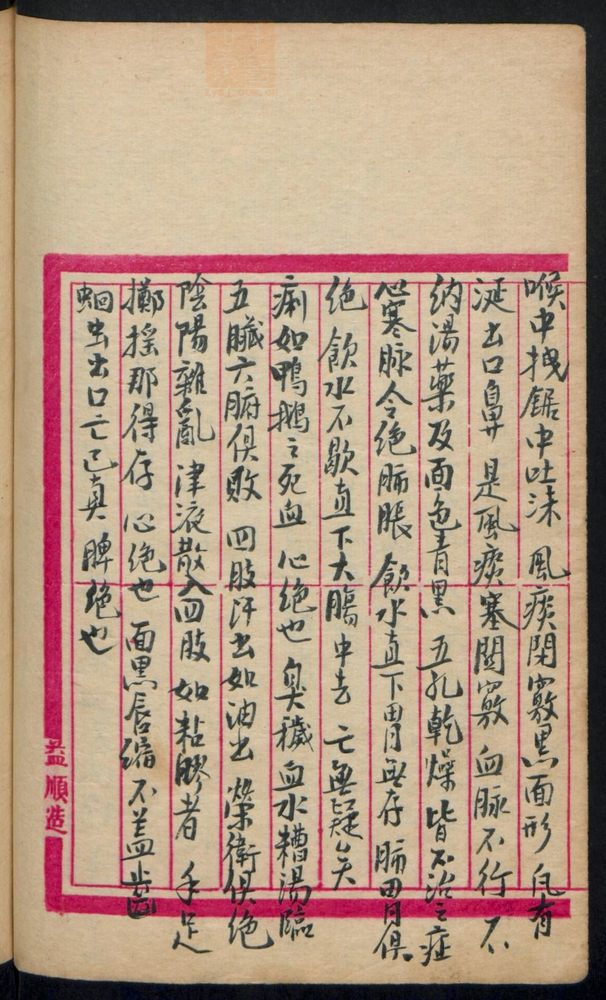 喉中拽鋸中吐沫 風痰閉竅黑面形 凡有
涎出口鼻 是風痰塞關竅 血脉不行 不
納湯藥及面色青黑 五孔乾燥皆不治之症
心寒脉令絶肺脹 飲水直下胃無存 肺胃俱
絶 飲水不歇直下大腸中去 亡無疑矣
痢如鴨鵝之死血 心絶也 臭穢血水糟湯臨
五臟六腑俱敗 四肢汗出如油出 榮衛俱絶
陰陽雜亂 津液散入四肢 如粘膠者 手足
擲搖那得存 心絶也 面黑唇縮不盖齒
蛔虫出口亡已真 脾絶也
益順造